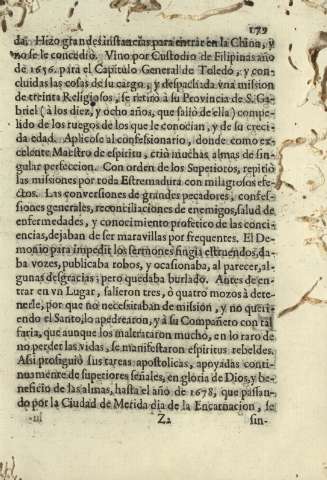 179
da. Hizo grandes instancias para entrar en la China, y
no se le concediò. Vino por Custodio de Filipinas año
de 1656. para el Capitulo General de Toledo, y con-
cluidas las cosas de su cargo, y despachada vna mission
de treinta Religiosos, se retirò à su Provincia de S. Ga-
briel (à los diez, y ocho años, que saliò de ella) compe-
lido de los ruegos de los que le conocian, y de su creci-
da edad. Aplicose al confessionario, donde como ex-
celente Maestro de espiritu, criò muchas almas de sin-
gular perfeccion. Con orden de los Superiores, repitiò
las missiones por toda Estremadura con milagrosos efec-
ctos. Las conversiones de grandes pecadores, confes-
siones generales, reconciliaciones de enemigos, salud de
enfermedades, y conocimiento profetico de las concien-
cias, dejaban de ser maravillas por frequentes. El De-
monio para impedir los sermones fingia estruendos, da-
ba vozes, publicaba robos, y ocasionaba, al parecer, al-
gunas desgracias; pero quedaba burlado. Antes de en-
trar en vn Lugar, salieron tres, ò quatro mozos à dete-
nerle, por que no necessitaban de mission, y no queri-
endo el Santo, lo apedrearon, y à su Compañero con tal
furia, que aunque los maltrataron mucho, en lo raro de
no perder las vidas, se manifestaron espiritus rebeldes.
Assi prosiguiò sus tareas apostolicas, apoyadas conti-
nuamente de superiores señales, en gloria de Dios, y be-
neficio de las almas, hasta el año de 1678, que passan-
do por la Ciudad de Merida dia de la Encarnacion, se
Z2 sin-